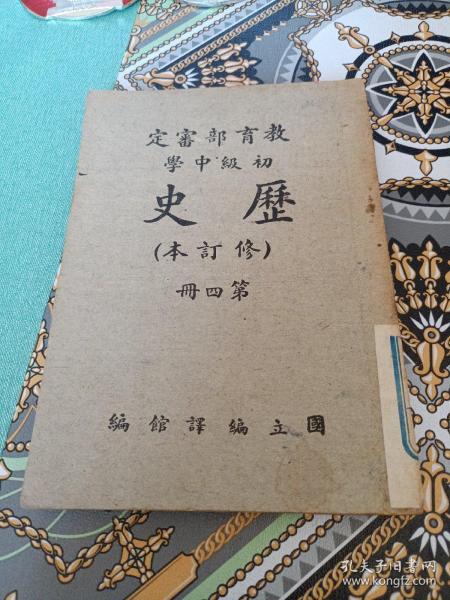 教育部審定
初級中學
歷史
(修訂本)
第四冊
國立編譯館編
孔夫子旧书网
www.kongfz.com